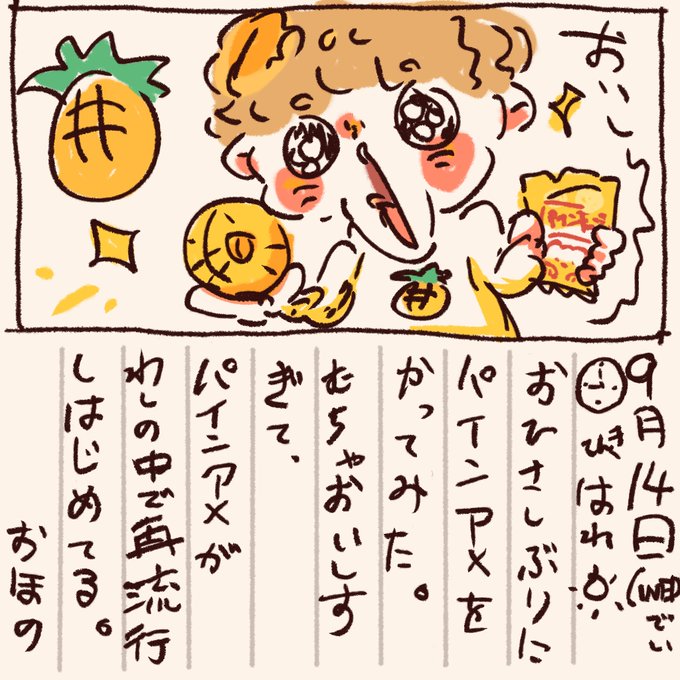 おいし
9月14日(WEDでい
ひっき はれ
おひさしぶりに
パインアメを
かってみた。
むちゃおいしす
ぎて、
パインアメが
わしの中で再流行
しはじめてる。
おほの